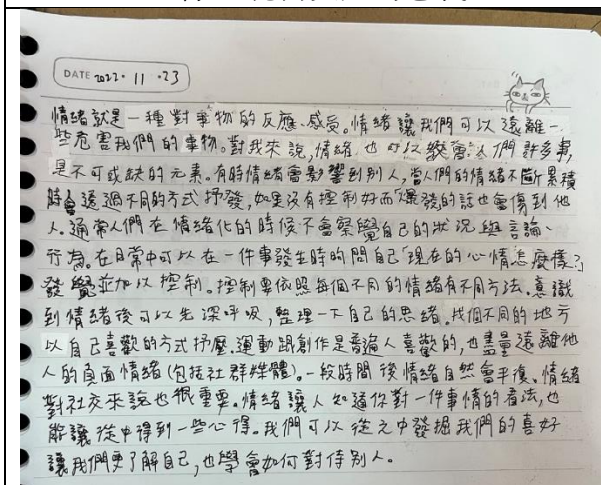 DATE 2022.11.23
情緒就是一種對事物的反應、感受。情緒讓我們可以遠離一
些危害我們的事物。對我來說,情緒也可以教會人們許多事,
是不可或缺的元素。有時情緒會影響到別人,當人們的情緒不斷累積
時會透過不同的方式抒發,如果沒有控制好而爆發的話也會傷到他
人。通常人們在情緒化的時侯不會察覺自己的狀況與言論、
行為。在日常中可以在一件事發生時的問自己「現在的心情怎麼樣?」
發覺並加以控制。控制要依照每個不同的情緒有不同方法.意識
到情緒後可以先深呼吸,整理一下自己的思緒.找個不同的地方
以自己喜歡的方式抒壓.運動跟創作是普遍人喜歡的,也盡量遠離他
人的負面情緒(包括社群媒體)。一段時間後情緒自然會平復。情緒
對社交來說也很重要。情緒讓人知道你對一件事情的看法,也
能讓從中得到一些心得。我們可以從之中發掘我們的喜好
讓我們更了解自己,也學會如何對待別人。